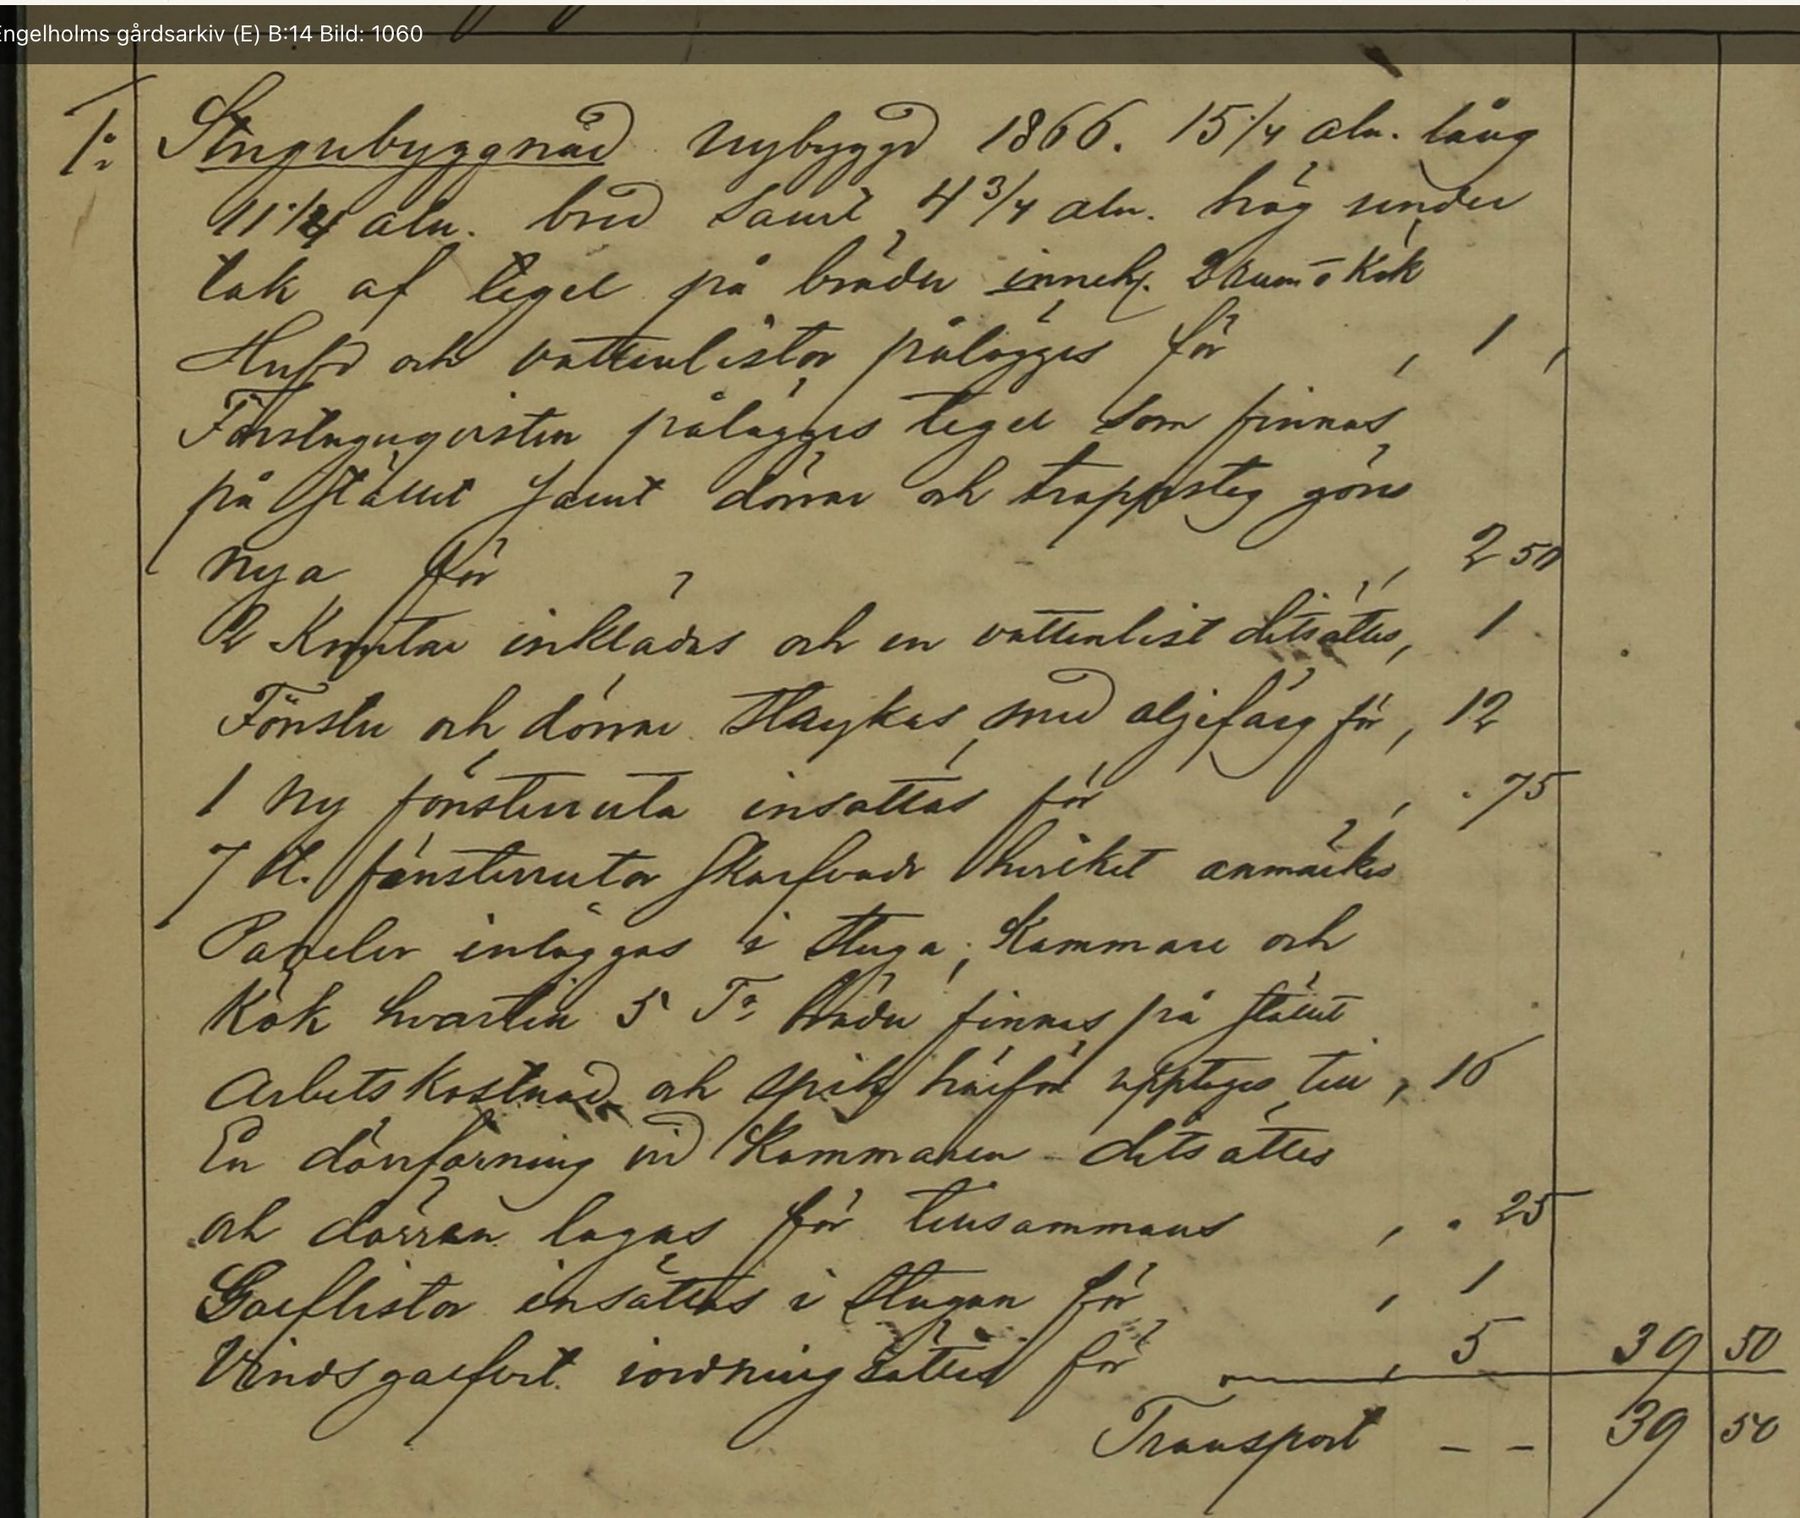 Engelholms gårdsarkiv (E) B:14 Bild: 1060
1:o Stugubyggnad nybyggd 1866. 15 1/4 aln. lång
11 1/4 aln. bred samt 4 3/4 aln. hög under
tak af tegel på bräder inneh. 2 rum o kök
Hufd och vattenlistor pålägges för , 1 ,
Förstuguqvisten pålägges tegel som finnas
på stället samt dörrar och trappsteg göres
nya för , 2 50
2 Knutar inklädas och en vattenlist ditsättes, 1
Fönster och dörrar strykas med oljefärg för , 12
1 ny fönsterruta insättas för , . 75
7 st. fönsterrutor skarfvade hvilket anmärkes
Paneler inläggas i stuga, Kammare och
Kök hvartill 5 T:r bräder finnas på stället
Arbetskostnad och spik härför upptages till , 16
En dörrforning vid Kammaren ditsättes
och dörren lagas för tillsammans , . 25
Golflistor insättas i stugan för , 1
Vindsgolfvet iordningsättes för , 5 39 50
Transport – – 39 50